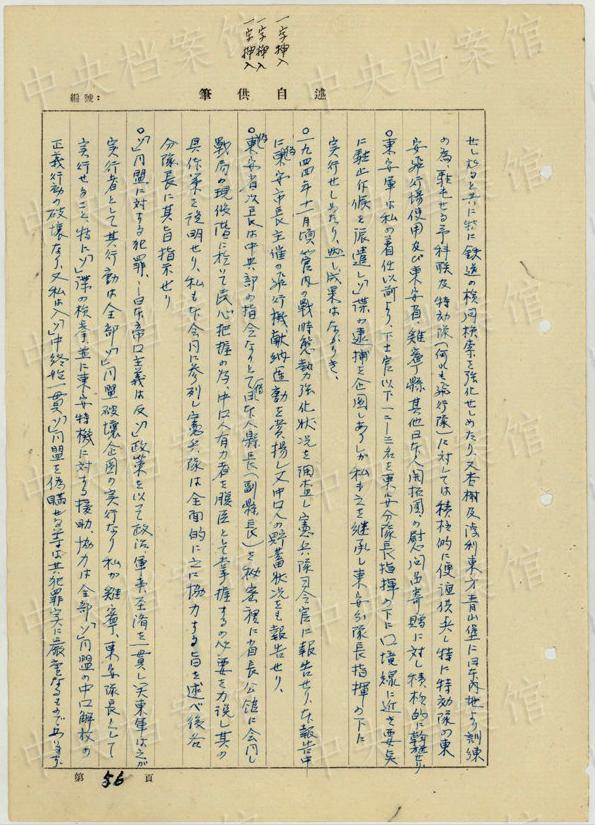 一字押入
一字押入
一字押入
編號：
筆供自述
せしむると共に特に鉄道の検問検索を強化せしめたり、又杏樹及勃利東方青山堡に日本内地より訓練
の為転
予科練及特効隊(何れも飛行隊)に対しては積極的に便宜供与し特に特効隊の東
安飛行場使用及び東安省雞寧縣其他日本人開拓団の慰問品寄贈に対し積極的に
せり、
東安
は私の着任以前より、下士官以下二-三名を東安分隊長指揮の下に口境線に近き要点
に駐止斥候を派遣し「ソ」諜の逮捕を企図しありしが私も之を継承し東安分隊長指揮の下に
実行せしめたり、
し成果はなかりき、
一九四四年十一月頃管内の戦時態勢強化状況を調査し憲兵隊司令官に報告せり、本報告中
に東安市長主催の飛行機献納運動を賞揚し又中口人の貯蓄状況をも報告せり、
東安省次長は中央部の指令なりとて日本人縣長(副縣長)を秘密裡に省長公館に会同し
戦局の現段階に於いて民心把握の為、中口人有力者を腹臣として掌握するの必要を力説し其の
具体策を説明せり、私も本会同に参列し憲兵隊は全面的に之に協力する旨を述べ後各
分隊長に其旨指示せり
「ソ」同盟に対する犯罪、
日本帝口主義は反「ソ」政策を以て政治、軍事、至済を一貫し
関東軍は之が
実行者として其行動は全部「ソ」同盟破壊企図の実行なり私が雞寧、東安隊長として
実行せること、特に「ソ」諜の検挙並に東安特機に対する援助、協力は全部「ソ」同盟の中口解放の
正義行動の破壊なり、又私は入「ソ」中終始一貫「ソ」同盟を偽瞞せる
は其犯罪実に厳重なるものであります、
第 56 頁
中央档案馆